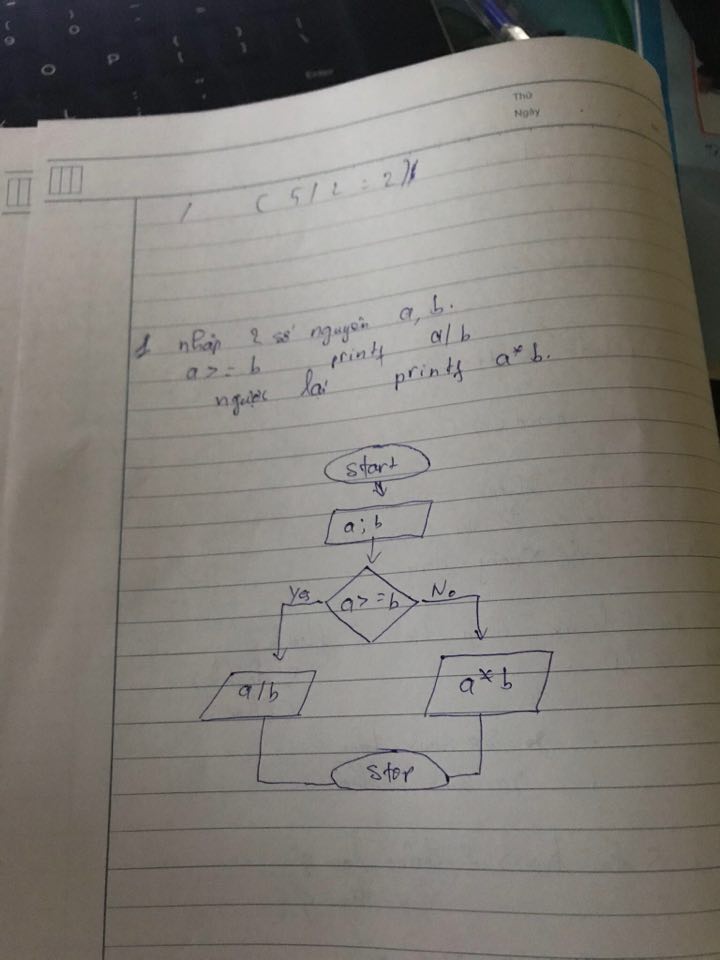 Enter
Thứ
Ngày
/ ( 5 / 2 = 2 )
1 nhập 2 số nguyên a, b.
a >= b printf a/b
ngược lại printf a* b.
start
a; b
Yes a >= b No
a/b a* b
Stop